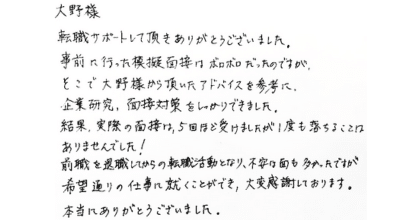 大野様
転職サポートして頂きありがとうございました。
事前に行った模擬面接はボロボロだったのですが、
そこで大野様から頂いたアドバイスを参考に、
企業研究、面接対策をしっかりできました。
結果、実際の面接は、5回ほど受けましたが1度も落ちることは
ありませんでした!
前職を退職してからの転職活動となり、不安な面も多かったですが
希望通りの仕事に就くことができ、大変感謝しております。
本当にありがとうございました。